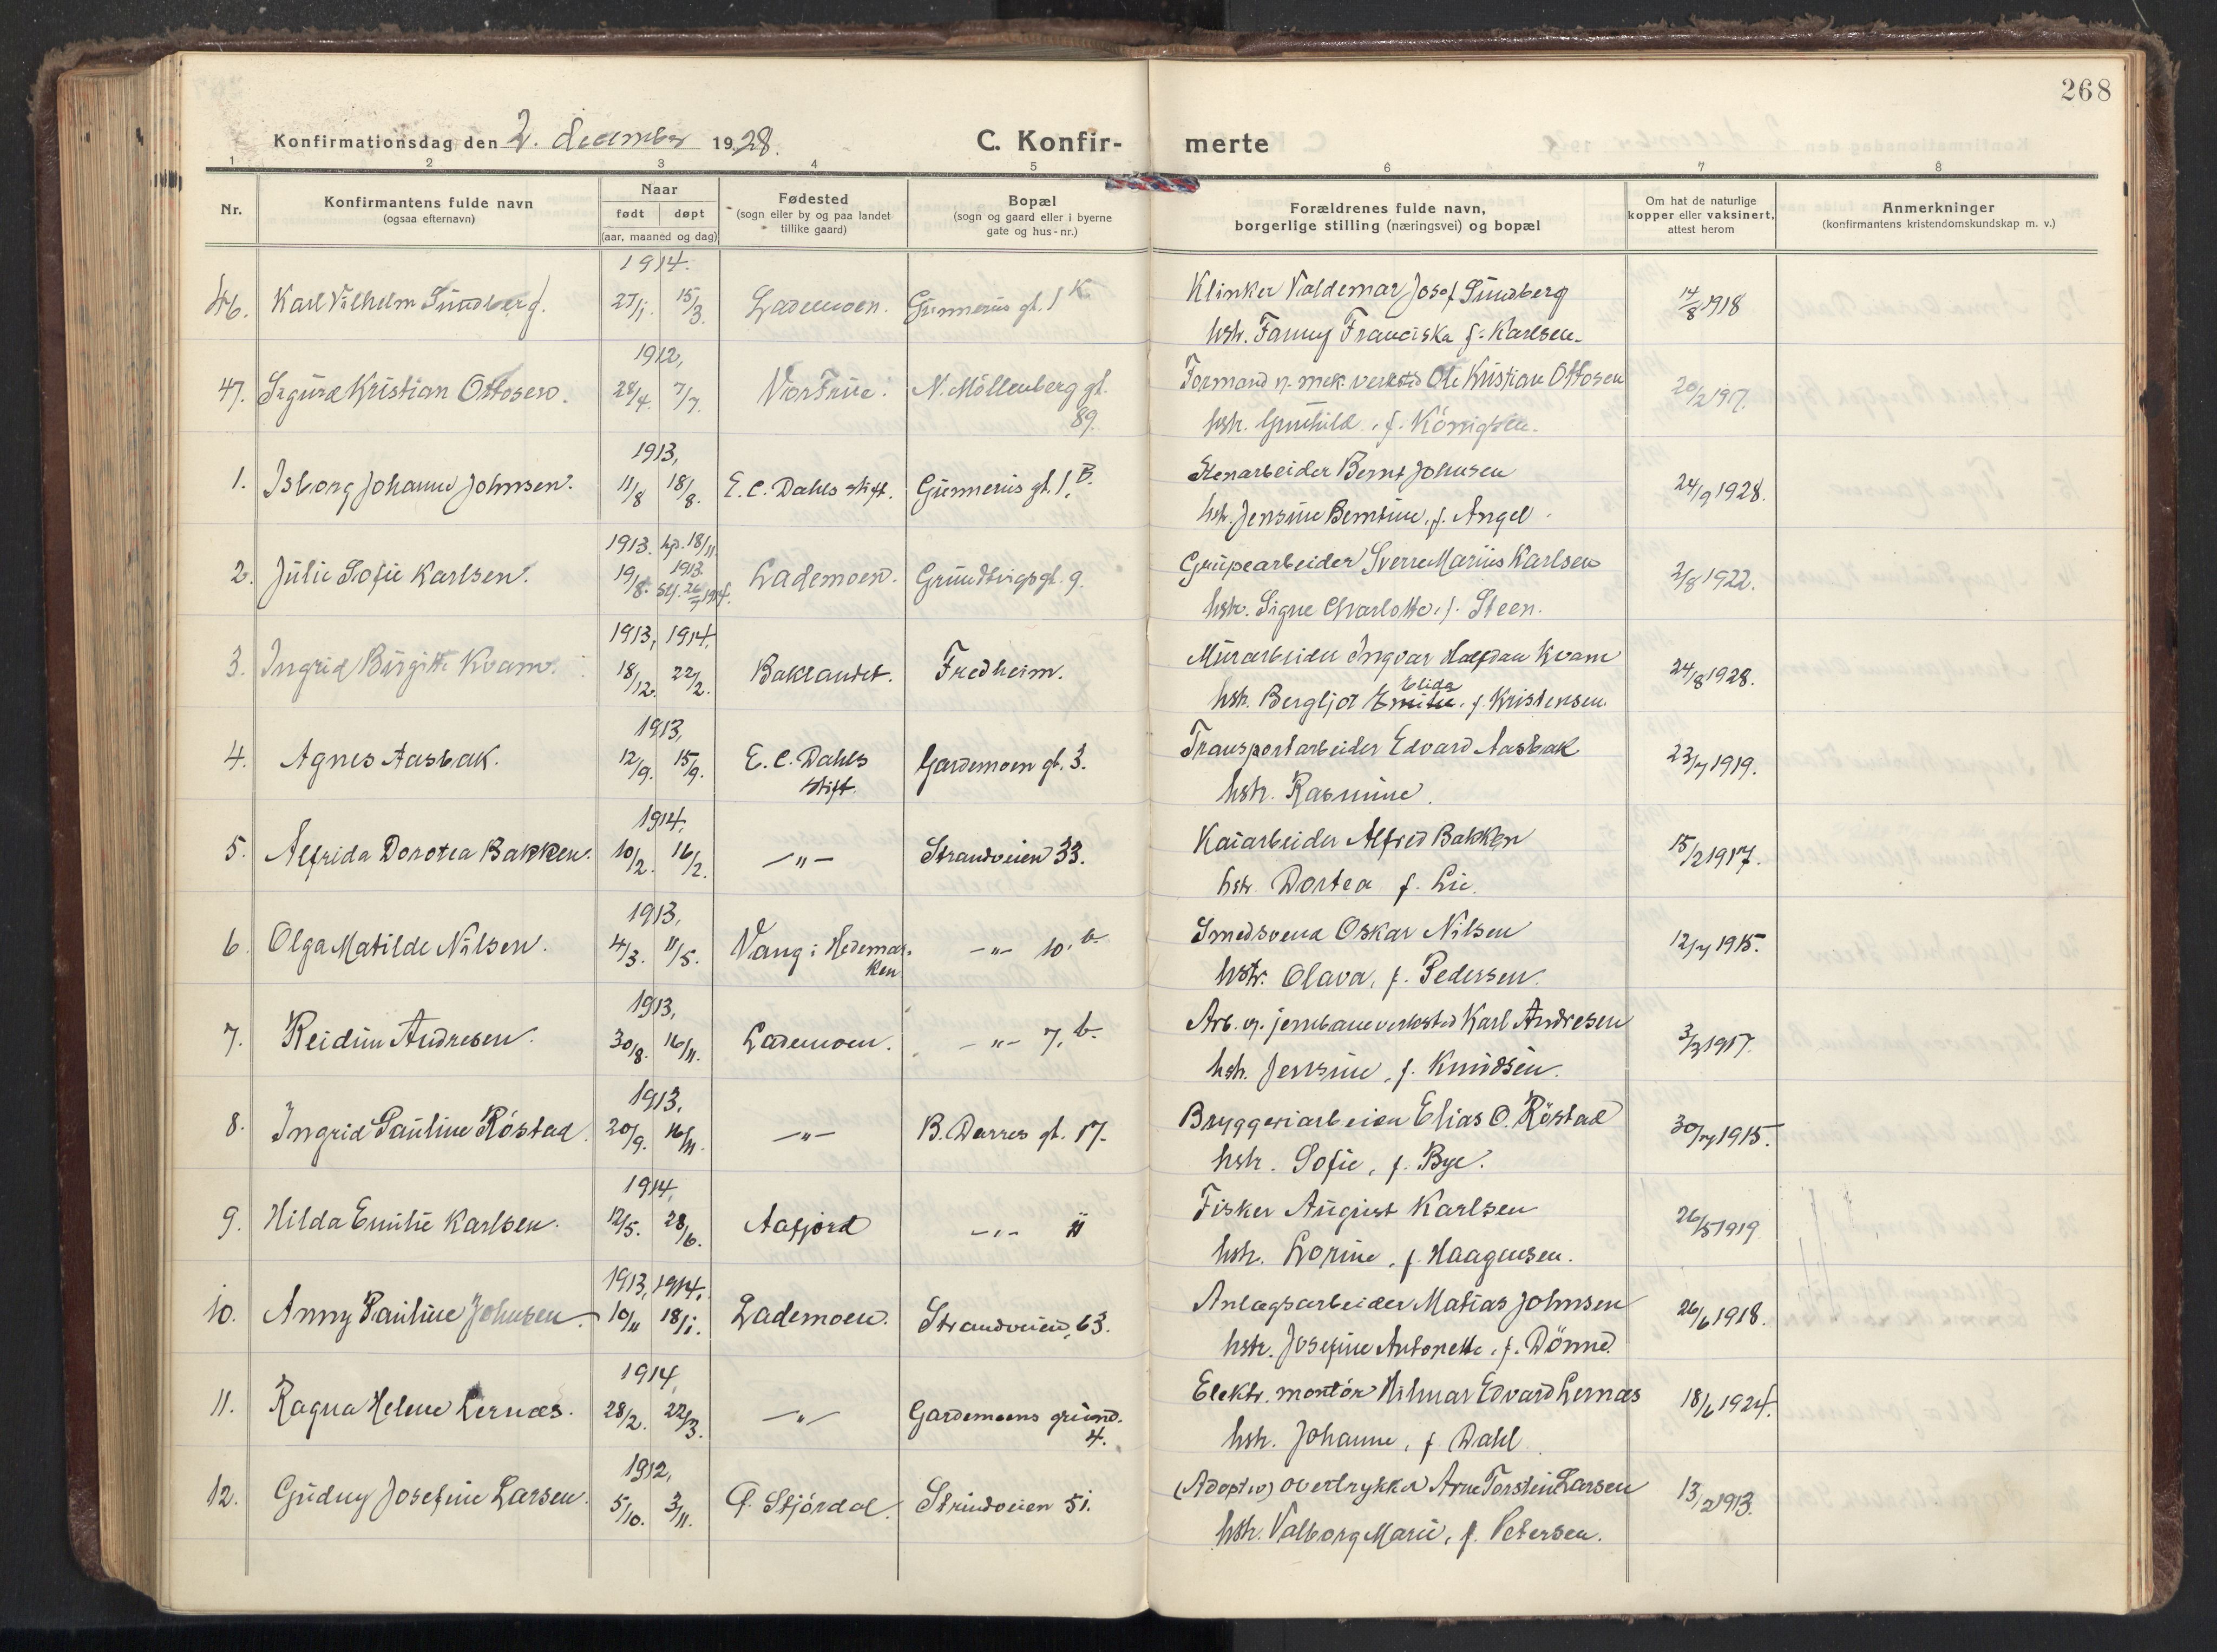 268
Konfirmationsdag den 2. december 1928. C. Konfir- merte
1 2 3 4 5 6 7 8
Nr. Konfirmantens fulde navn (ogsaa efternavn) Naar født døpt (aar, maaned og dag) Fødested (sogn eller by og paa landet tillike gaard) Bopæl (sogn og gaard eller i byerne gate og hus-nr.) Forældrenes fulde navn, borgerlige stilling (næringsvei) og bopæl Om hat de naturlige kopper eller vaksinert, attest herom Anmerkninger (konfirmantens kristendomskundskap m. v.)
1914.
46. Karl Vilhelm Sundberg. 27/1. 15/3. Lademoen. Gunnerus gt. 1 K. Klinker Valdemar Josef Sundberg 14/8 1918
hstr. Fanny Franciska f. Karlsen.
1912,
47. Sigurd Kristian Ottosen. 28/4. 7/7. Vor Frue. N. Möllenberg gt. 89. Formand v. mek. verksted Ole Kristian Ottosen 20/2 1917.
hstr. Gunhild, f.
1913,
1. Isborg Johanne Johnsen. 11/8 18/8. E. C. Dahls stift. Gunnerus gt. 1. B. Stenarbeider Bernt Johnsen 24/9 1928.
hstr. Jensine Berntine, f. Angel.
1913. hjd. 18/11 1913.
2. Julie Sofie Karlsen. 19/8. stf. 26/7 1914. Lademoen. Grundtvigs gt. 9. Grupearbeider Sverre Marius Karlsen 2/8 1922.
hstr. Signe Charlotte, f. Steen.
1913, 1914.
3. Ingrid Birgitte Kvam. 18/12. 22/2. Baklandet. Fredheim. Murarbeider Ingvar Halfdan Kvam 24/8 1928.
hstr. Bergljot Emilie Elida, f. Kristensen.
1913,
4. Agnes Aasbak. 12/9. 15/9. E. C. Dahls stift. Gardemoen gt. 3. Transportarbeider Edvard Aasbak 23/7 1919.
hstr. Rasmine.
1914,
5. Alfrida Dorotea Bakken. 10/2. 16/2. -"- Strandveien 33. Kaiarbeider Alfred Bakken 15/2 1917.
hstr. Dortea f. Lie.
1913,
6. Olga Matilde Nilsen. 4/3. 11/5. Vang i Hedemarken -"- 10. b. Smedsvend Oskar Nilsen 12/7 1915.
hstr. Olava, f. Pedersen.
1913,
7. Reidun Andresen. 30/8. 16/11. Lademoen. -"- 7. b. Arb. v. jernbaneverksted Karl Andresen 3/3 1917.
hstr. Jensine, f. Knudsen.
1913,
8. Ingrid Pauline Röstad. 20/9. 16/11. -"- B. Darres gt. 17. Bryggeriarbeider Elias O. Röstad 30/7 1915.
hstr. Sofie, f. Bye.
1914,
9. Hilda Emilie Karlsen. 12/5. 28/6. Aafjord -"- " Fisker August Karlsen 26/5 1919
hstr. Lorine, f. Haagensen.
1913, 1914.
10. Anny Pauline Johnsen. 10/11 18/1. Lademoen. Strandveien, 63. Anlægsarbeider Matias Johnsen 26/6 1918.
hstr. Josefine Antonette, f. Dönne.
1914,
11. Ragna Helene Lernæs. 28/2. 22/3. -"- Gardemoens grund. 4. Elektr. montör Hilmar Edvard Lernæs 18/6 1924.
hstr. Johanne, f. Dahl
1912,
12. Gudny Josefine Larsen. 5/10. 3/11. Stjördal. Strindveien 51. (Adoptiv) overtrykker Arne Torstein Larsen 13/2 1913.
hstr. Valborg Marie, f. Petersen.